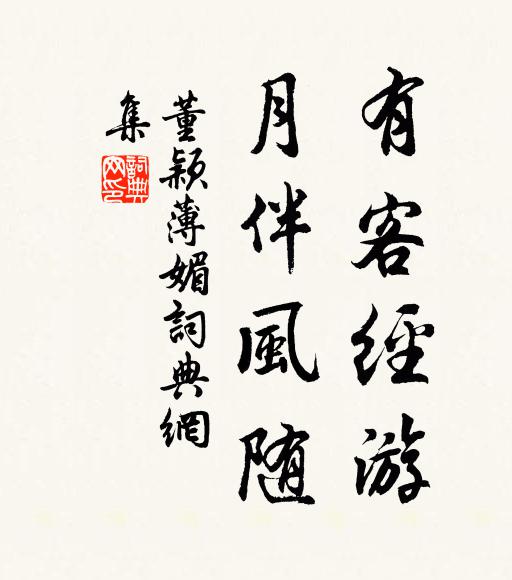 有客經游
月伴風随
董穎薄媚詞典網
集
詞典
网印